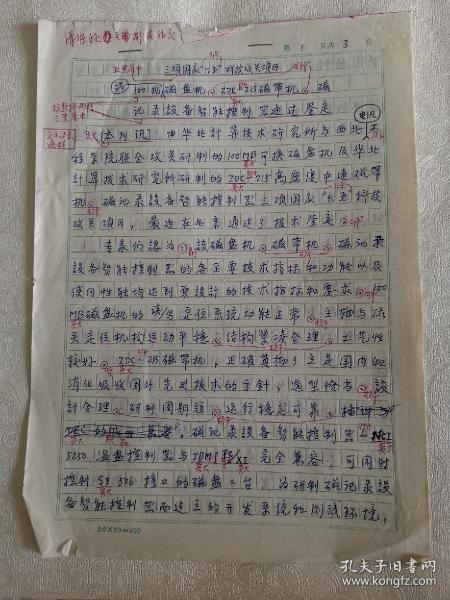 第 1 页共 3 页
三项国家"六五"科技攻关项目
100机磁盘机、ZDC-215磁带机、磁
记录设备智能控制器通过鉴定
[本刊讯] 由华北计算技术研究所与西北
学院联合攻关研制的100MB可换磁盘机及华北
计算技术研究所研制的ZDC-215高密度中速磁带
机、磁记录设备智能控制器三项国家"六五"科技
攻关项目,最近在北京通过了技术鉴定。
专家们认为,该磁盘机、磁带机、磁记录
设备智能控制器的各主要技术指标和功能以及
使用性能均达到要设计的技术指标和要求。100
MB磁盘机的读写定位系统功能正常,主轴与磁
头定位机构运动平稳,结构紧凑合理,工艺性
较好。ZDC-215磁带机,正确贯彻了立足国内和
消化吸收国外先进技术的方针,选型恰当,设
计合理,研制周期短,运行稳定可靠。
磁记录设备智能控制器
5250温盘控制器与完全兼容,可同时
控制506接口的磁盘二台,为研制磁记录设
备智能控制器而建立的开发系统和测试环境,
20×20=400
孔夫子旧书网
www.kongfz.com